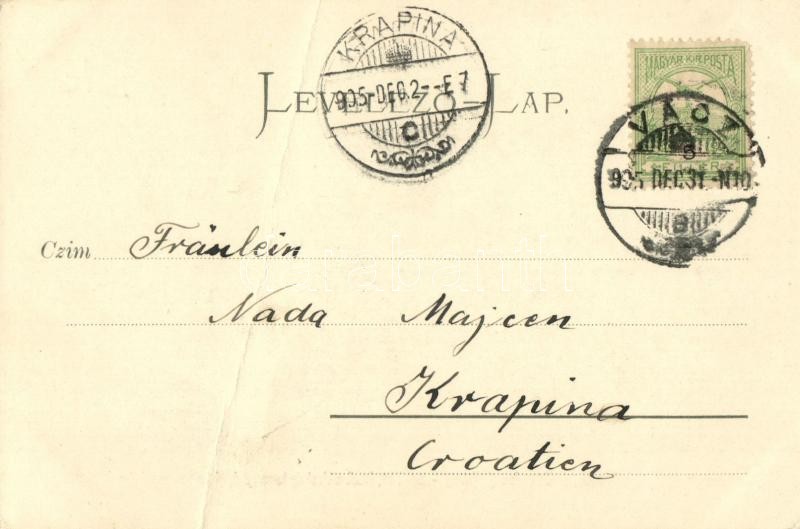 KRAPINA
905-DEC.2--E7
C
LEVELEZŐ-LAP.
MAGYAR·KIR·POSTA
VÁCZ
905 DEC31.-N10
Czim Fräulein
Nada Majcen
Krapina
Croatien